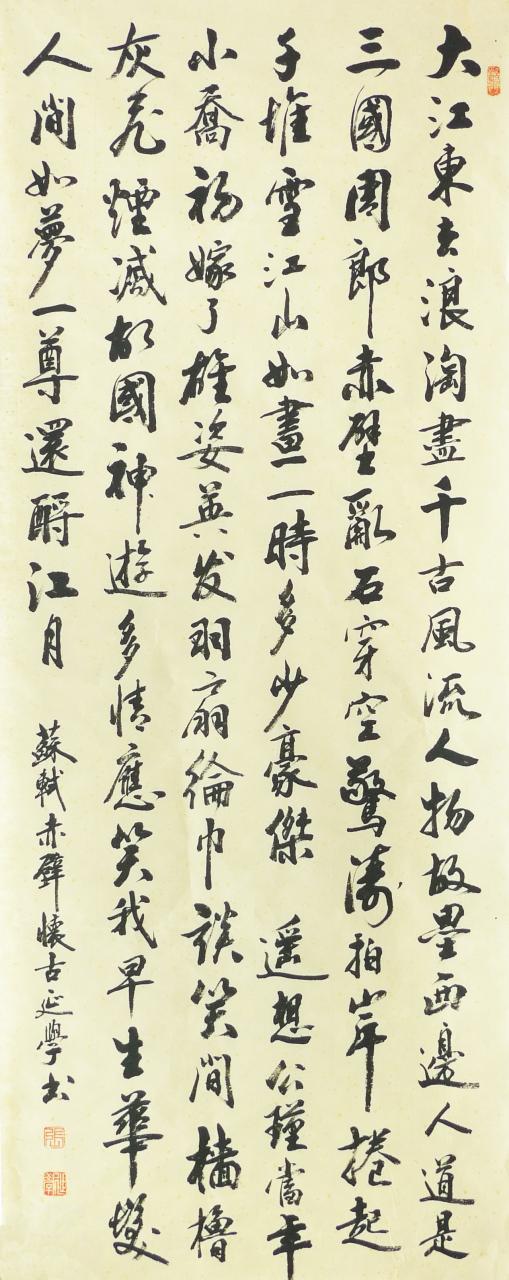 大江東去浪淘盡千古風流人物故壘西邊人道是
三國周郎赤壁亂石穿空驚濤拍岸捲起
千堆雪江山如畫一時多少豪傑 遥想公瑾當年
小喬初嫁了雄姿英发羽扇綸巾談笑間檣櫓
灰飛煙滅故國神遊多情應笑我早生華髮
人間如夢一尊還酹江月
蘇軾赤壁懷古延學书